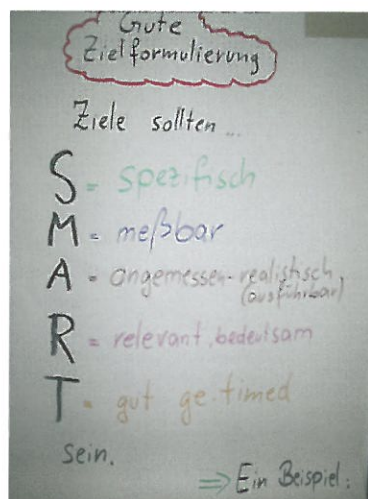 Gute
Zielformulierung
Ziele sollten ...
S = spezifisch
M = meßbar
A = angemessen-realistisch,
(ausführbar)
R = relevant, bedeutsam
T = gut ge-timed
sein.
=> Ein Beispiel: